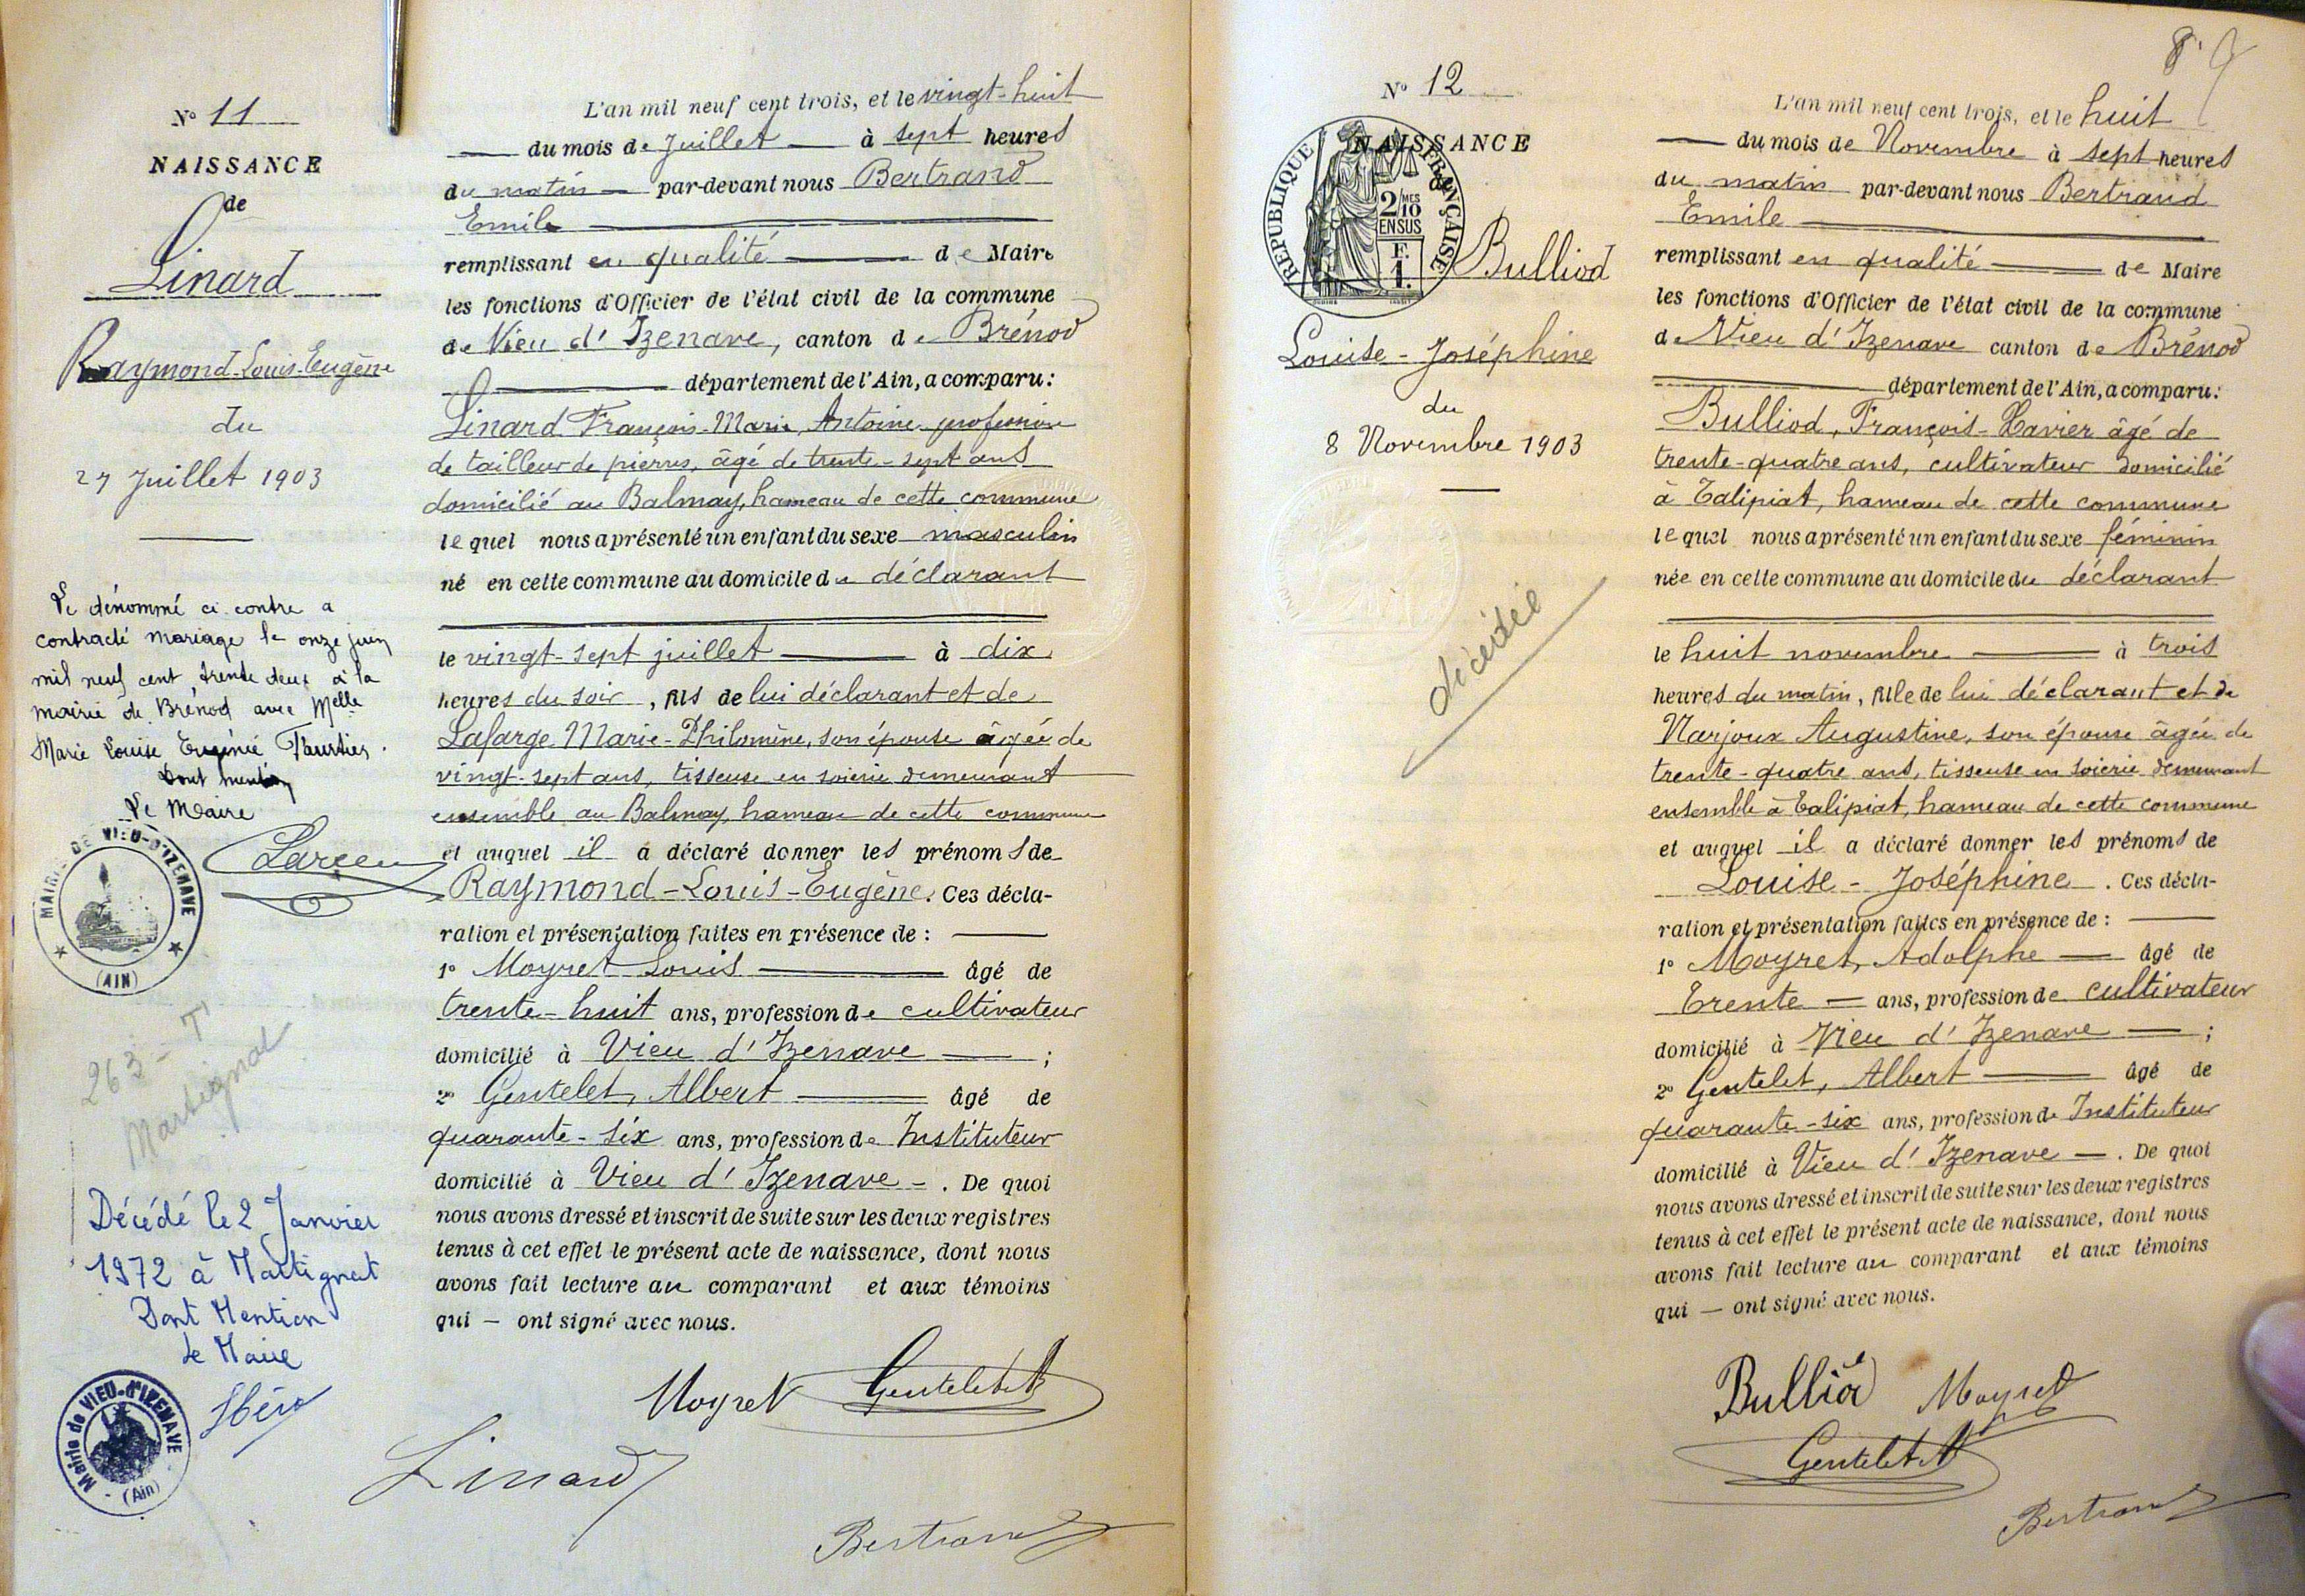 N° 11
NAISSANCE
de
Linard
Raymond-Louis-Eugène
du
27 Juillet 1903
Le dénommé ci-contre a
contracté mariage le onze juin
mil neuf cent trente deux à la
mairie de Brénod avec Melle
Marie Louise Eugénie
Dont mention
Le Maire
MAIRIE DE VIEU-D'IZENAVE
(AIN)
263 - T
Martignat
Décédé le 2 Janvier
1972 à Martignat
Dont Mention
Le Maire
Mairie de VIEU-d'IZENAVE
(Ain)
L'an mil neuf cent trois, et le vingt-huit
du mois de Juillet à sept heures
du matin par-devant nous Bertrand
Emile
remplissant en qualité de Maire
les fonctions d'Officier de l'état civil de la commune
de Vieu d'Izenave, canton de Brénod
département de l'Ain, a comparu :
Linard François-Marie Antoine profession
de tailleur de pierres, âgé de trente-sept ans
domicilié au Balmay, hameau de cette commune
lequel nous a présenté un enfant du sexe masculin
né en cette commune au domicile du déclarant
le vingt-sept juillet à dix
heures du soir, fils de lui déclarant et de
Lafarge Marie-Philomène, son épouse âgée de
vingt-sept ans, tisseuse en soierie demeurant
ensemble au Balmay, hameau de cette commune
et auquel il a déclaré donner les prénoms de
Raymond-Louis-Eugène. Ces décla-
ration et présentation faites en présence de :
1° Moyret Louis âgé de
trente-huit ans, profession de cultivateur
domicilié à Vieu d'Izenave ;
2° Gentelet, Albert âgé de
quarante-six ans, profession de Instituteur
domicilié à Vieu d'Izenave - . De quoi
nous avons dressé et inscrit de suite sur les deux registres
tenus à cet effet le présent acte de naissance, dont nous
avons fait lecture au comparant et aux témoins
qui — ont signé avec nous.
Moyret Gentelet A
Linard
Bertrand
N° 12
NAISSANCE
de
RÉPUBLIQUE FRANÇAISE
2/10 MES
EN SUS
F.
1.
Bulliod
Louise-Joséphine
du
8 Novembre 1903
décédée
L'an mil neuf cent trois, et le huit
du mois de Novembre à sept heures
du matin par-devant nous Bertrand
Emile
remplissant en qualité de Maire
les fonctions d'Officier de l'état civil de la commune
de Vieu d'Izenave canton de Brénod
département de l'Ain, a comparu :
Bulliod, François-Xavier âgé de
trente-quatre ans, cultivateur domicilié
à Talipiat, hameau de cette commune
lequel nous a présenté un enfant du sexe féminin
née en cette commune au domicile du déclarant
le huit novembre à trois
heures du matin, fille de lui déclarant et de
Marjoux Augustine, son épouse âgée de
trente-quatre ans, tisseuse en soierie demeurant
ensemble à Talipiat, hameau de cette commune
et auquel il a déclaré donner les prénoms de
Louise-Joséphine. Ces décla-
ration et présentation faites en présence de :
1° Moyret, Adolphe âgé de
Trente ans, profession de cultivateur
domicilié à Vieu d'Izenave ;
2° Gentelet, Albert âgé de
quarante-six ans, profession de Instituteur
domicilié à Vieu d'Izenave — . De quoi
nous avons dressé et inscrit de suite sur les deux registres
tenus à cet effet le présent acte de naissance, dont nous
avons fait lecture au comparant et aux témoins
qui — ont signé avec nous.
Bulliod Moyret
Gentelet A
Bertrand